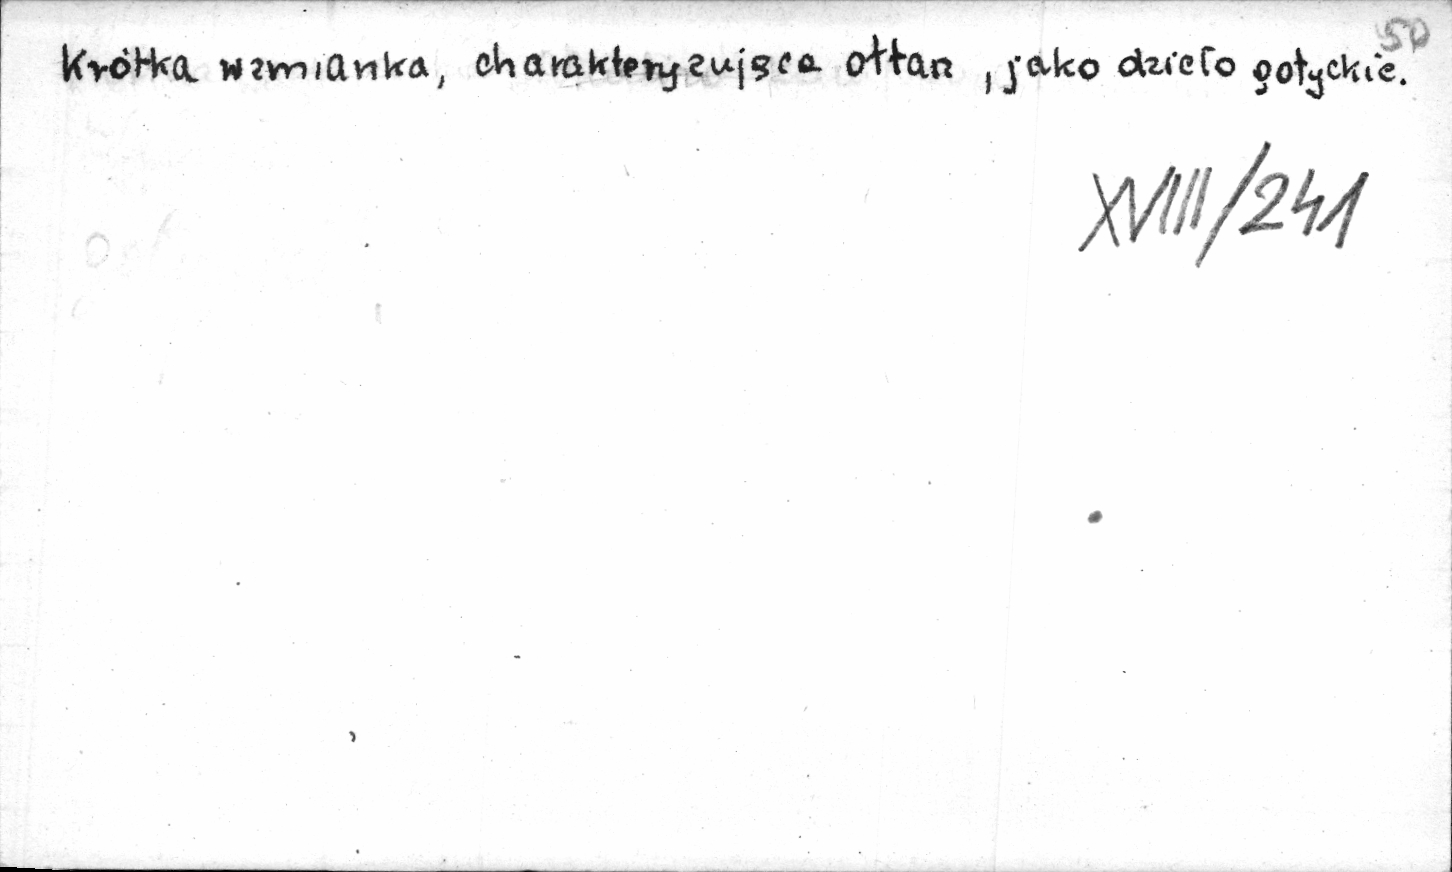 50
Krótka wzmianka, charakteryzująca ołtarz, jako dzieło gotyckie.
XVIII/241